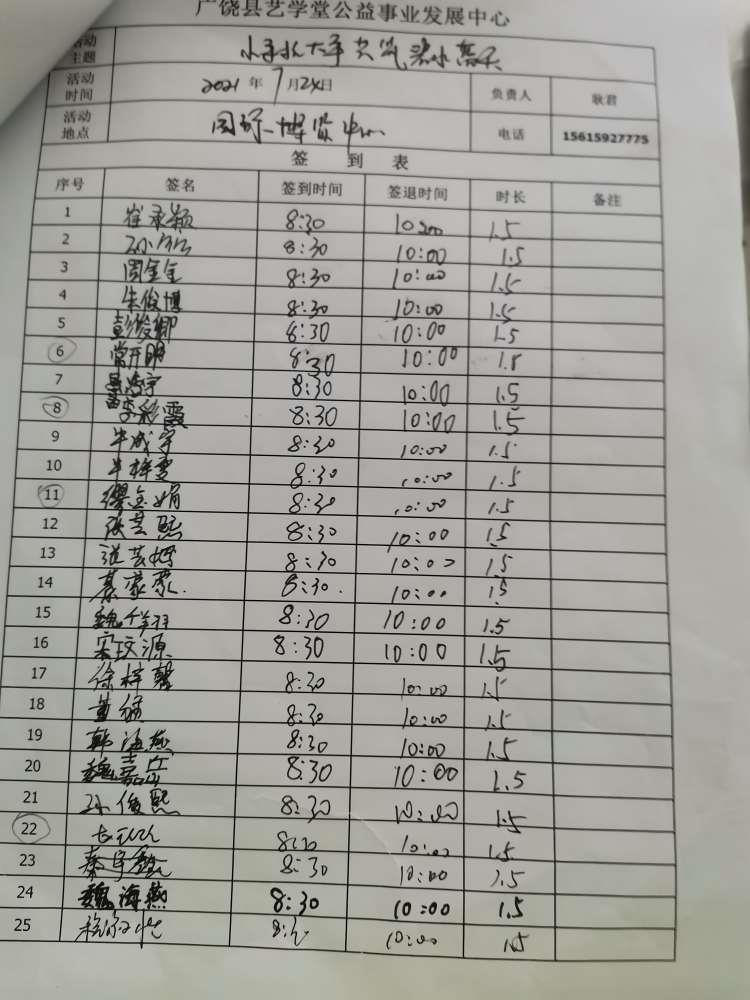 广饶县艺学堂公益事业发展中心
活动主题 小手拉大手
活动时间 2021年7月24日 负责人 耿君
活动地点 国际博览中心 电话 15615927775
签 到 表
序号 签名 签到时间 签退时间 时长 备注
1 崔承颖 8:30 10:00 1.5
2 8:30 10:00 1.5
3 周金金 8:30 10:00 1.5
4 朱俊博 8:30 10:00 1.5
5 彭俊卿 8:30 10:00 1.5
6 常开明 8:30 10:00 1.5
7 8:30 10:00 1.5
8 李彩霞 8:30 10:00 1.5
9 牛成宇 8:30 10:00 1.5
10 牛梓雯 8:30 10:00 1.5
11 缪金娟 8:30 10:00 1.5
12 张芸熙 8:30 10:00 1.5
13 8:30 10:00 1.5
14 綦蒙蒙 8:30 10:00 1.5
15 魏 8:30 10:00 1.5
16 宋玟源 8:30 10:00 1.5
17 徐梓馨 8:30 10:00 1.5
18 黄 8:30 10:00 1.5
19 韩海燕 8:30 10:00 1.5
20 魏嘉 8:30 10:00 1.5
21 孙俊熙 8:30 10:00 1.5
22 8:30 10:00 1.5
23 秦宇 8:30 10:00 1.5
24 魏海燕 8:30 10:00 1.5
25 10:00 1.5